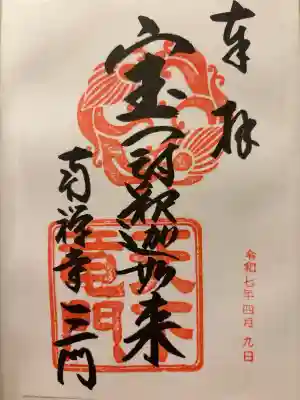 奉拝
宝冠釈迦如来
南禅寺三門
天下竜門
令和七年四月九日